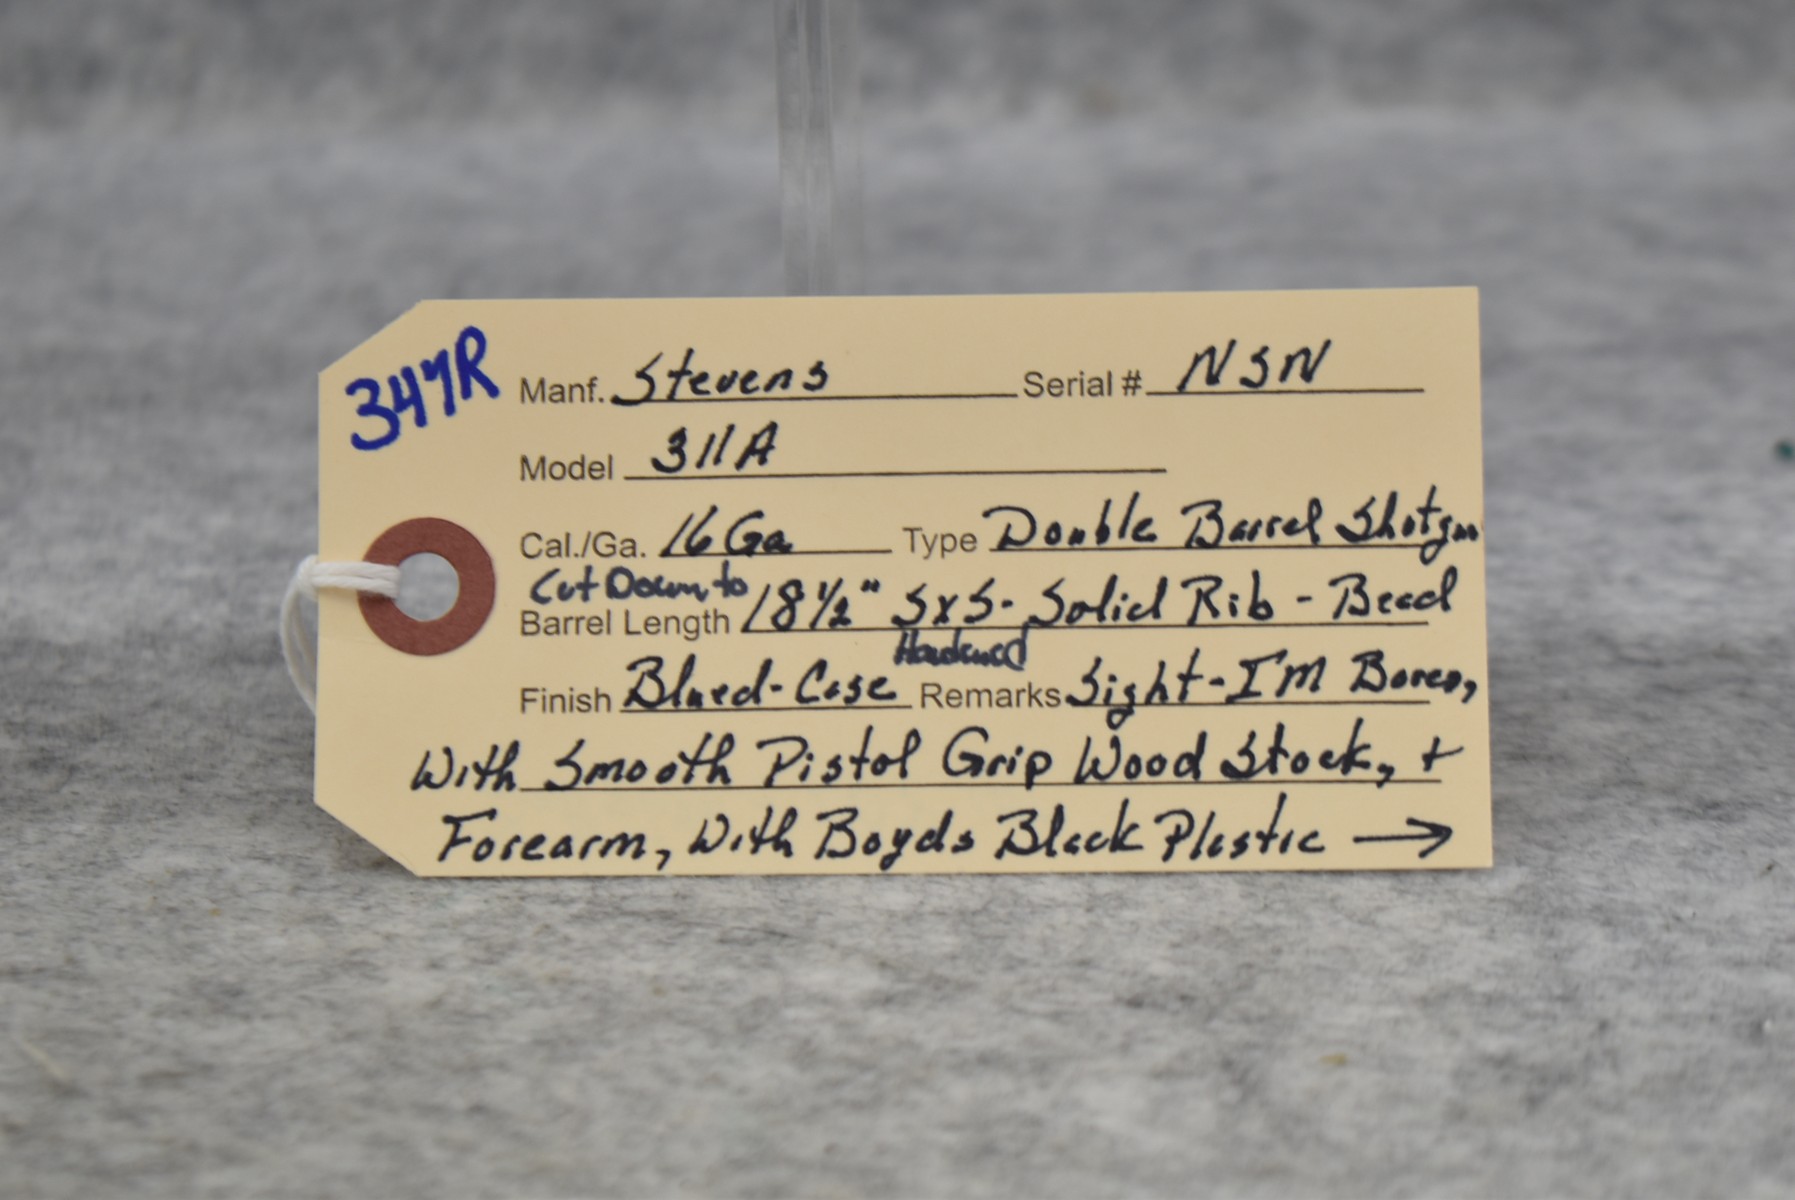 347R
Manf. Stevens Serial # NSN
Model 311A
Cal./Ga. 16 Ga Type Double Barrel Shotgun
Cut Down to
Barrel Length 18½" SXS- Solid Rib - Bead
Hardened
Finish Blued-Case Remarks Sight-IM Bores,
With Smooth Pistol Grip Wood Stock, +
Forearm, With Boyds Black Plastic →